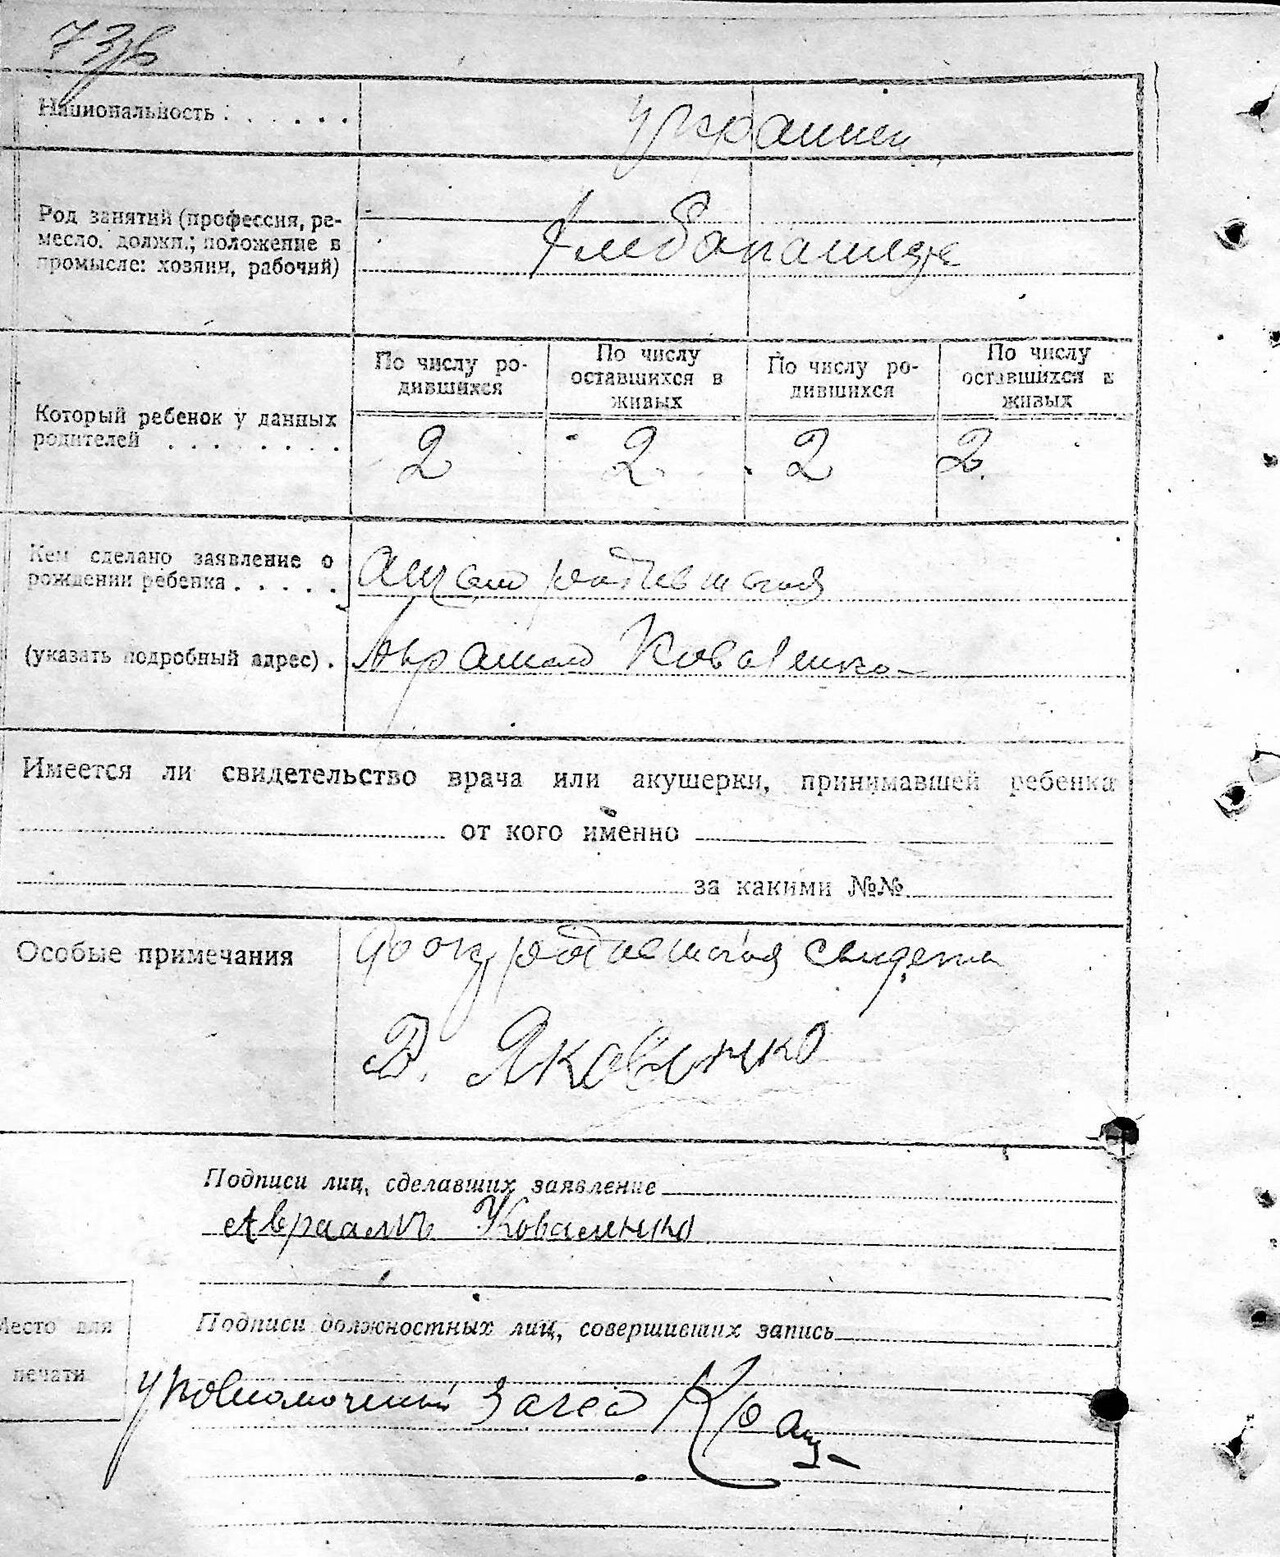 Национальность : . . . . . .
украинец
Род занятий (профессия, ре-
месло, должн.; положение в
промысле: хозяин, рабочий)
Хлебопашцы
Который ребенок у данных
родителей . . . . . . . .
По числу ро-
дившихся
По числу
оставшихся в
живых
По числу ро-
дившихся
По числу
оставшихся в
живых
2 2 2 2
Кем сделано заявление о
рождении ребенка . . . . .
(указать подробный адрес) .
Коваленко
Имеется ли свидетельство врача или акушерки, принимавшей ребенка
от кого именно
за какими №№
Особые примечания
В. Яковенко
Подписи лиц, сделавших заявление
Авраамъ Коваленко
Место для
печати
Подписи должностных лиц, совершивших запись
Уполномоченный Загса